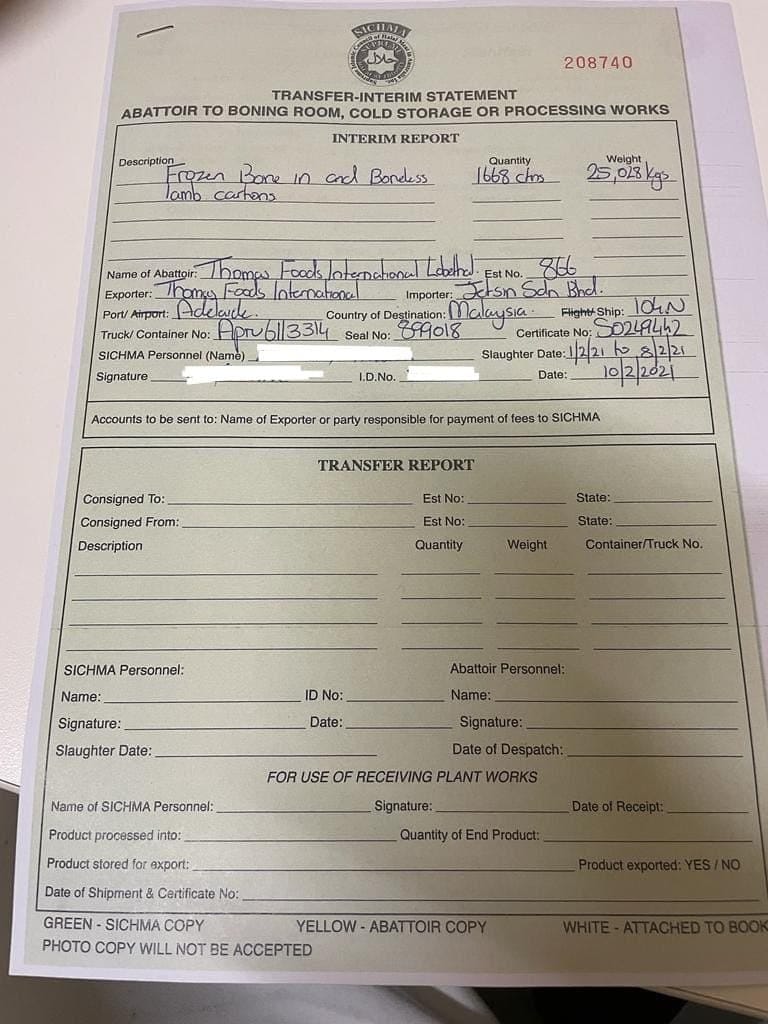 SICHMA
Supreme Islamic Council of Halal Meat in Australia Inc.
حلال
208740
TRANSFER-INTERIM STATEMENT
ABATTOIR TO BONING ROOM, COLD STORAGE OR PROCESSING WORKS
INTERIM REPORT
Description Quantity Weight
Frozen Bone in and Boneless 1668 ctns 25,028 kgs
lamb cartons
Name of Abattoir: Thomas Foods International Lobethal. Est No. 866
Exporter: Thomas Foods International Importer: Jetsin Sdn Bhd.
Port/ Airport: Adelaide. Country of Destination: Malaysia. Flight/ Ship: 104N
Truck/ Container No: Apru6113314 Seal No: 899018 Certificate No: S0249442
SICHMA Personnel (Name) Slaughter Date: 1/2/21 to 8/2/21
Signature I.D.No. Date: 10/2/2021
Accounts to be sent to: Name of Exporter or party responsible for payment of fees to SICHMA
TRANSFER REPORT
Consigned To: Est No: State:
Consigned From: Est No: State:
Description Quantity Weight Container/Truck No.
SICHMA Personnel: Abattoir Personnel:
Name: ID No: Name:
Signature: Date: Signature:
Slaughter Date: Date of Despatch:
FOR USE OF RECEIVING PLANT WORKS
Name of SICHMA Personnel: Signature: Date of Receipt:
Product processed into: Quantity of End Product:
Product stored for export: Product exported: YES / NO
Date of Shipment & Certificate No:
GREEN - SICHMA COPY YELLOW - ABATTOIR COPY WHITE - ATTACHED TO BOOK
PHOTO COPY WILL NOT BE ACCEPTED